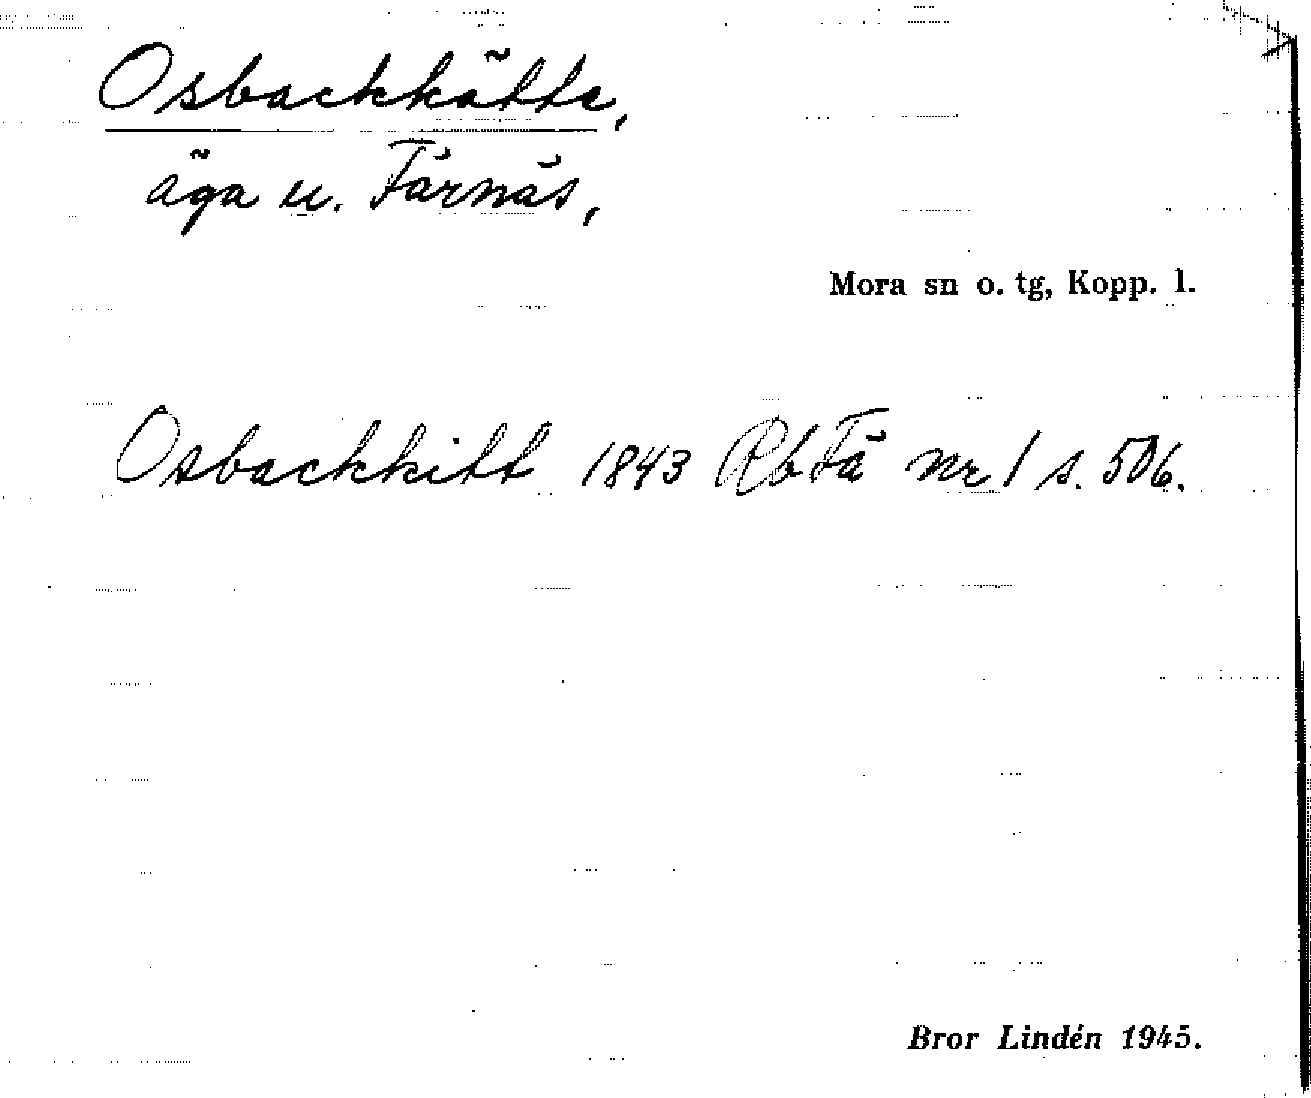 Osbackkätte,
äga u. Färnäs,
Mora sn o. tg, Kopp. l.
Osbackkitt 1843 Rb Fä nr 1 s. 506.
Bror Lindén 1945.